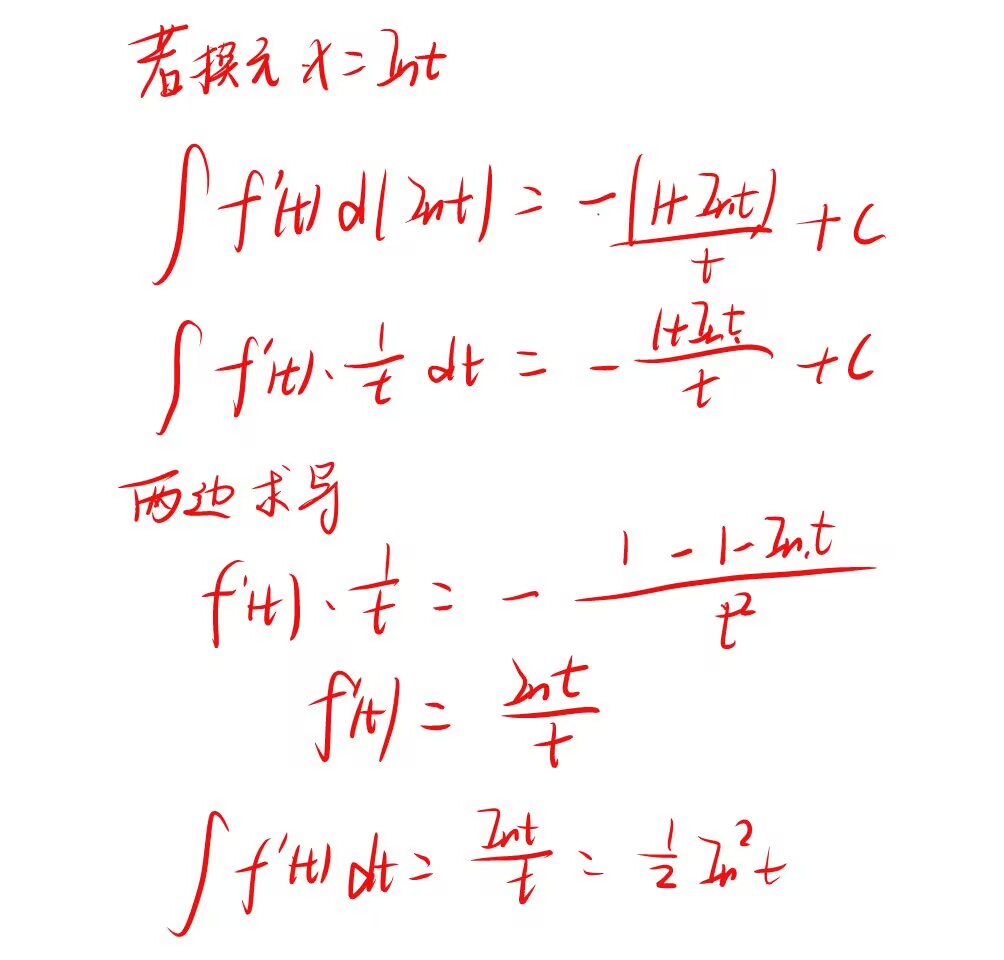 若换元 x = lnt
∫ f'(t) d(lnt) = -(1+lnt)/t + C
∫ f'(t)·1/t dt = - (1+lnt)/t + C
两边求导
f'(t)·1/t = - (1-1-lnt)/t²
f'(t) = lnt/t
∫ f'(t) dt = lnt/t = 1/2 ln²t